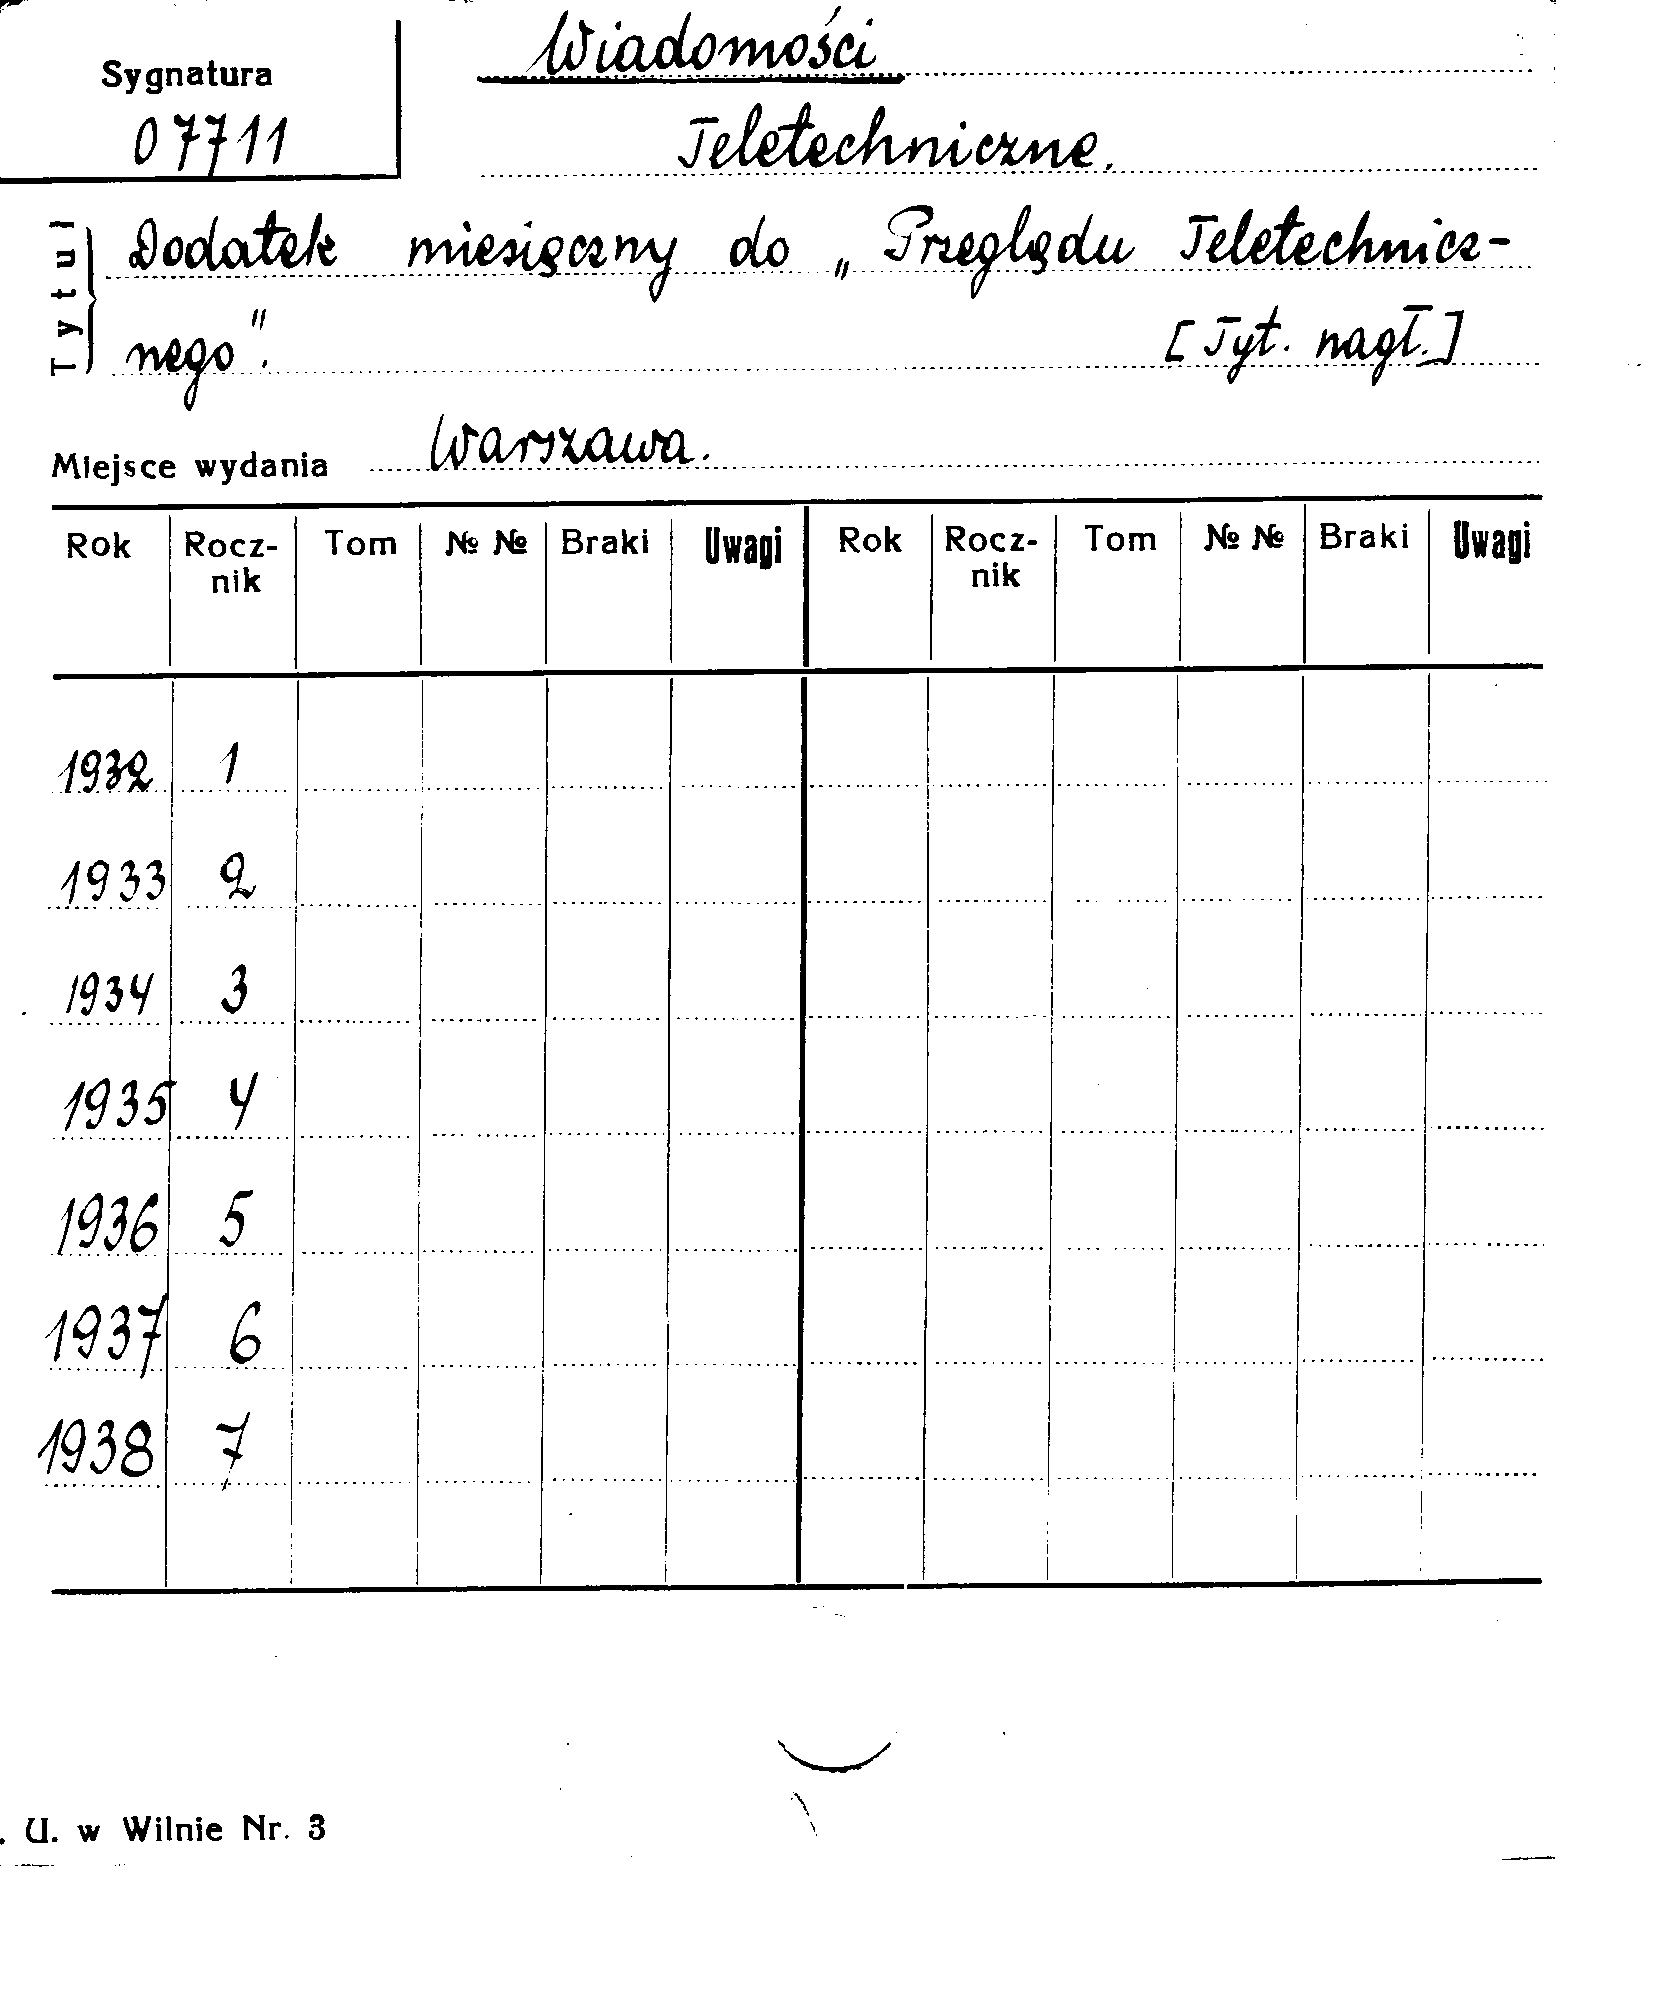 Sygnatura
07711
Wiadomości
Teletechniczne.
Tytuł
Dodatek miesięczny do „Przeglądu Teletechnicz-
nego".
[Tyt. nagł.]
Miejsce wydania Warszawa.
Rok Rocz-nik Tom № № Braki Uwagi Rok Rocz-nik Tom № № Braki Uwagi
1932 1
1933 2
1934 3
1935 4
1936 5
1937 6
1938 7
. U. w Wilnie Nr. 3